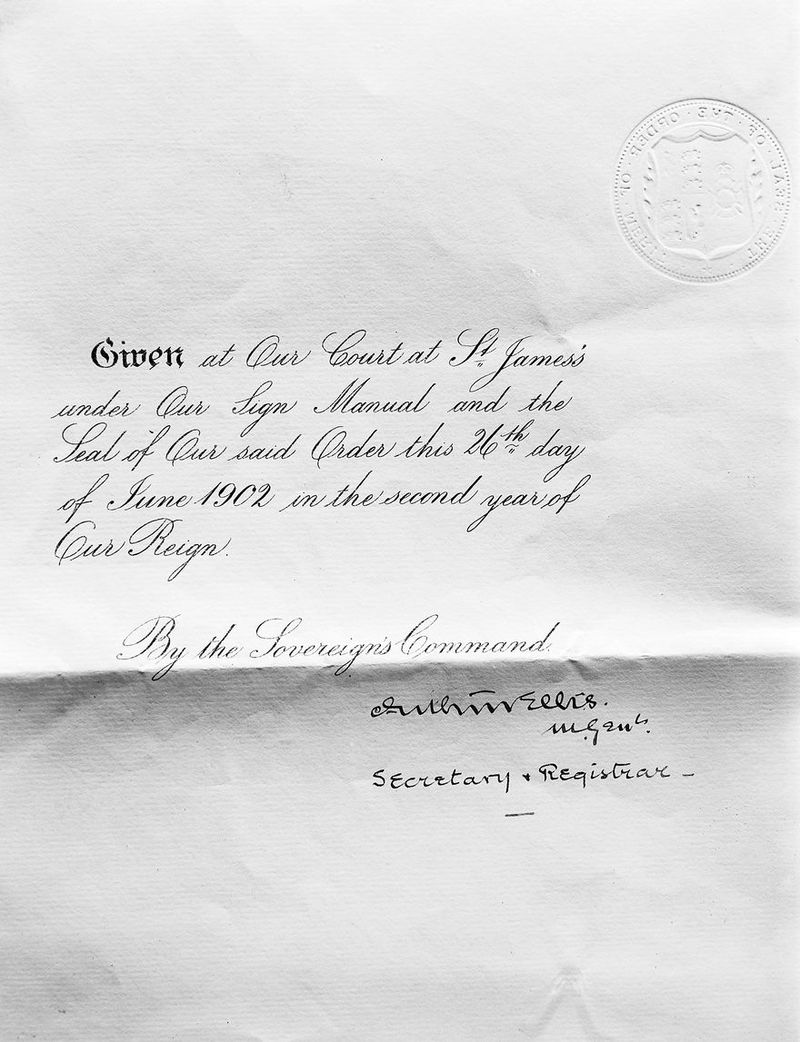 THE SEAL OF THE ORDER OF MERIT
Given at Our Court at St. James's
under Our Sign Manual and the
Seal of Our said Order this 26th day
of June 1902 in the second year of
Our Reign.
By the Sovereign's Command.
Arthur Ellis.
M.Genl.
Secretary & Registrar —